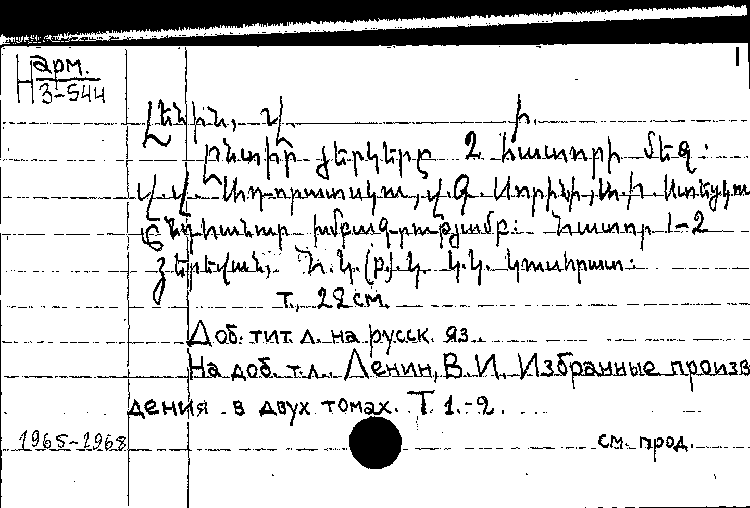 I
Н арм.
3-544
Լենին, Վ. Ի.
Ընտիր երկերը 2 հատորի մեջ:
ընդհանուր խմբագրությամբ: Հատոր 1-2
Երեվան, Կ.Կ.
т., 22 см.
Доб. тит. л. на русск. яз.
На доб. т.л.. Ленин, В.И. Избранные произв
дения в двух томах. Т. 1.-2.
1965-1968 см. прод.